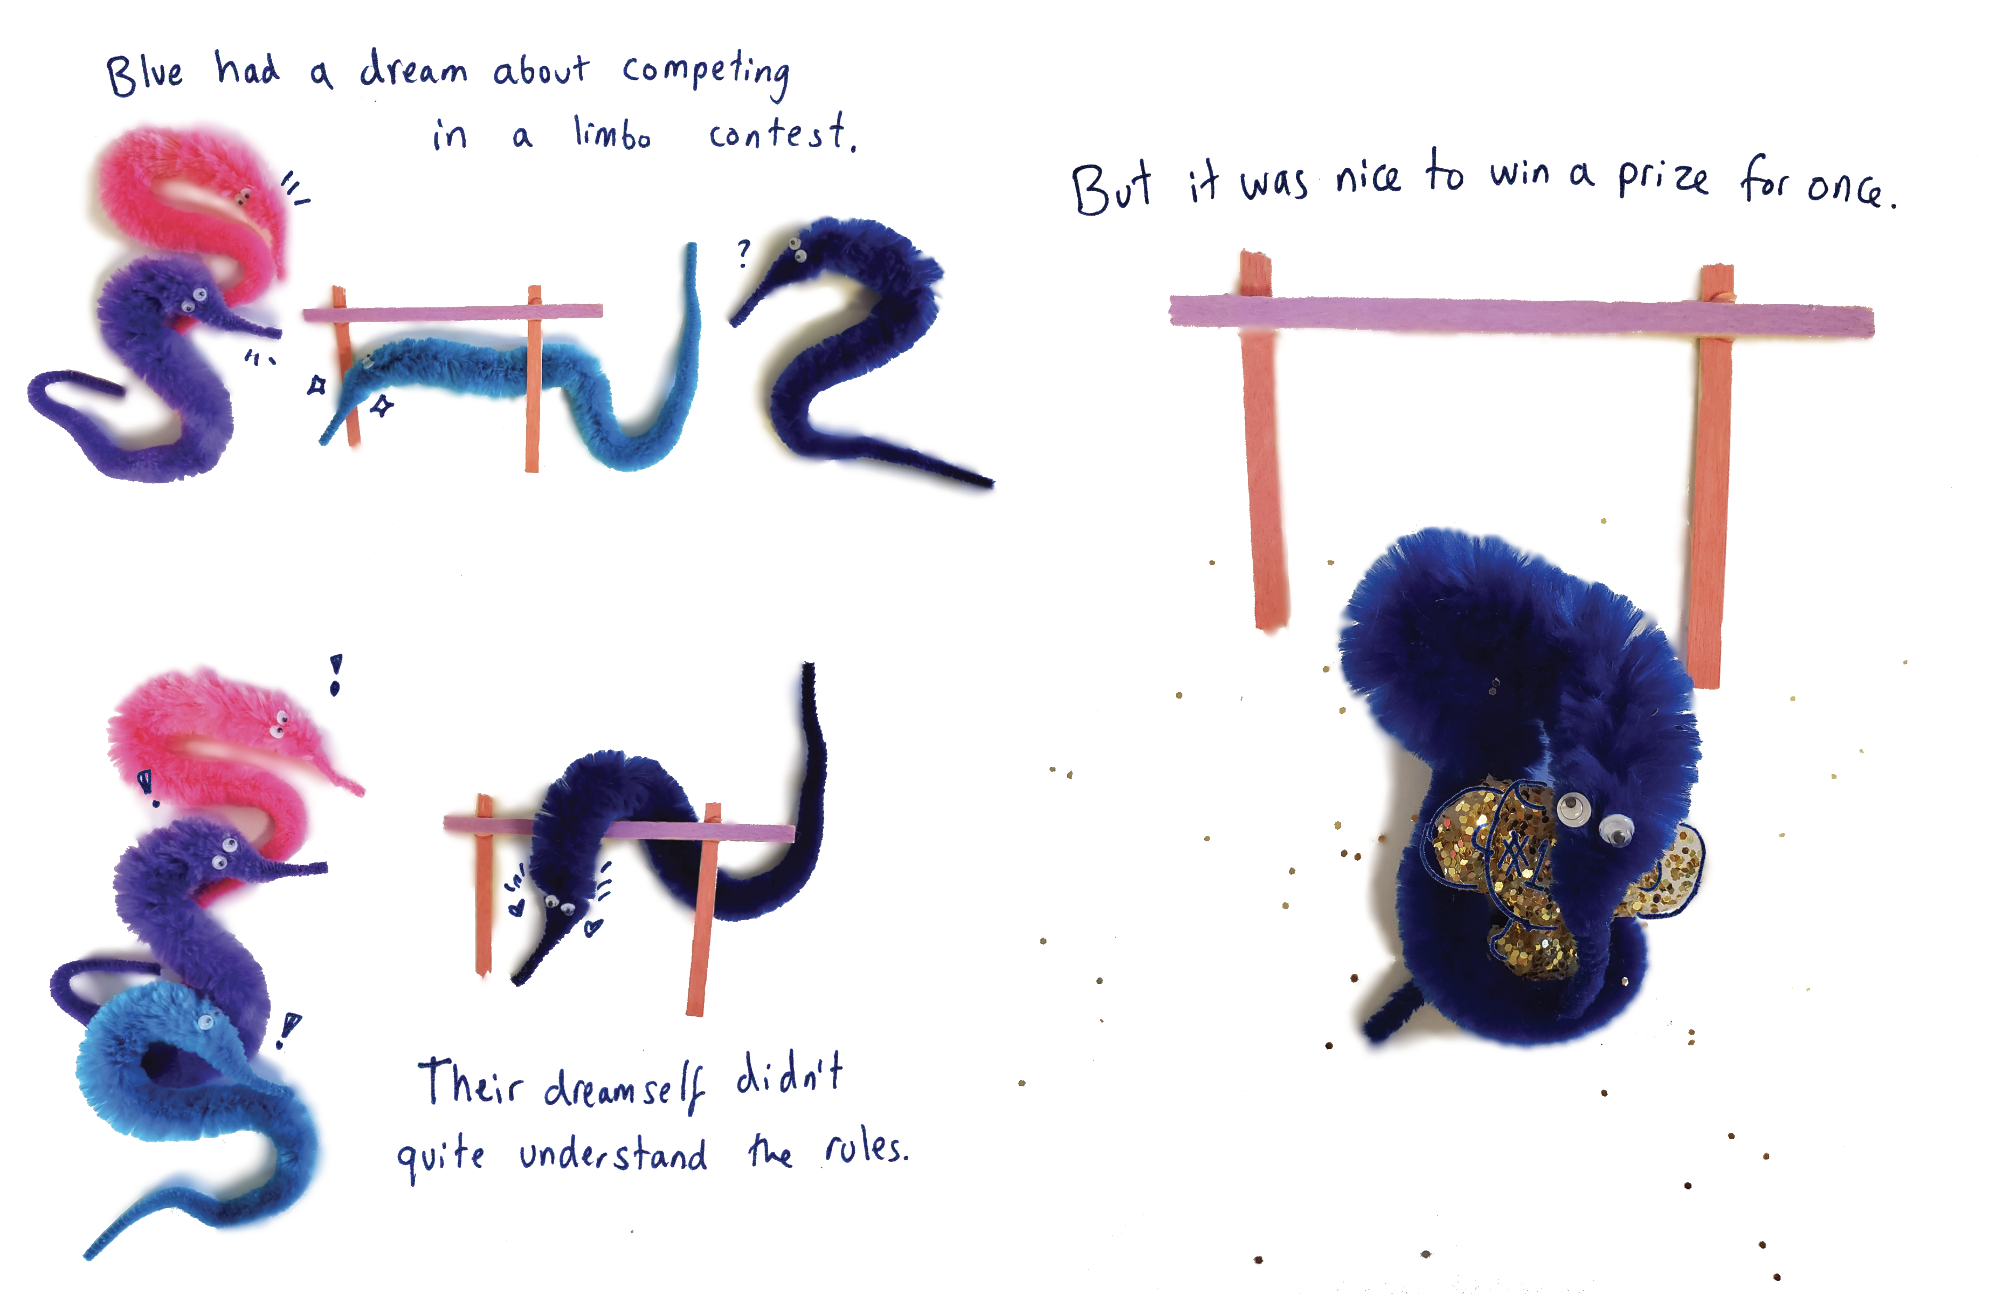 Blue had a dream about competing
in a limbo contest.
?
!
!
!
Their dreamself didn't
quite understand the rules.
But it was nice to win a prize for once.
#1